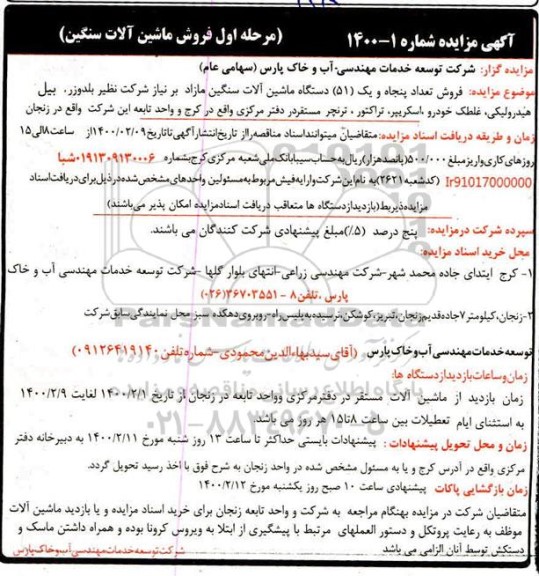 آگهی مزایده شماره ۱-۱۴۰۰ (مرحله اول فروش ماشین آلات سنگین)
مزایده گزار: شرکت توسعه خدمات مهندسی- آب و خاک پارس (سهامی عام)
موضوع مزایده: فروش تعداد پنجاه و یک (۵۱) دستگاه ماشین آلات سنگین مازاد بر نیاز شرکت نظیر بلدوزر، بیل
هیدرولیکی، غلطک خودرو ،اسکریپر، تراکتور ، ترنچر مستقردر دفتر مرکزی واقع در کرج و واحد تابعه این شرکت واقع در زنجان
زمان و طریقه دریافت اسناد مزایده:متقاضیان میتوانند اسناد مناقصه رااز تاریخ انتشار آگهی تا تاریخ ۱۴۰۰/۰۲/۰۹از ساعت ۸الی۱۵
روزهای کاری واریز مبلغ ۵۰۰/۰۰۰(پانصدهزار)ریال به حساب سیبابانک ملی شعبه مرکزی کرج،شماره ۰۱۹۱۳۰۹۱۳۰۰۰۶شبا
Ir91017000000 (کدشعبه۲۶۲۱)به نام این شرکت وارایه فیش مربوط به مسئولین واحدهای مشخص شده در ذیل برای دریافت اسناد
مزایده ذیربط(بازدیداز دستگاه ها متعاقب دریافت اسناد مزایده امکان پذیر می باشند)
سپرده شرکت در مزایده: پنج درصد (۵٪)مبلغ پیشنهادی شرکت کنندگان می باشند.
محل خرید اسناد مزایده:
۱- کرج ابتدای جاده محمد شهر-شرکت مهندسی زراعی-انتهای بلوار گلها -شرکت توسعه خدمات مهندسی آب و خاک
پارس .تلفن۸ - ۳۶۷۰۳۵۵۱(۰۲۶)
۲-زنجان،کیلومتر۷جاده قدیم زنجان،تبریز،کوشکن،نرسیده به پلیس راه-روبروی دهکده سبز محل نمایندگی سابق شرکت
توسعه خدمات مهندسی آب و خاک پارس (آقای سیدبهاءالدین محمودی-شماره تلفن ۰۹۱۲۶۴۱۹۱۴۰)
زمان و ساعات بازدید از دستگاه ها:
زمان بازدید از ماشین آلات مستقر در دفترمرکزی وواحد تابعه در زنجان از تاریخ ۱۴۰۰/۲/۱ لغایت ۱۴۰۰/۲/۹
به استثنای ایام تعطیلات بین ساعت ۸تا۱۵ هر روز می باشد.
زمان و محل تحویل پیشنهادات : پیشنهادات بایستی حداکثر تا ساعت ۱۳ روز شنبه مورخ ۱۴۰۰/۲/۱۱ به دبیرخانه دفتر
مرکزی واقع در آدرس کرج و یا به مسئول مشخص شده در واحد زنجان به شرح فوق با اخذ رسید تحویل گردد.
زمان بازگشایی پاکات پیشنهادی ساعت ۱۰ صبح روز یکشنبه مورخ ۱۴۰۰/۲/۱۲
متقاضیان شرکت در مزایده بهنگام مراجعه به شرکت و واحد تابعه زنجان برای خرید اسناد مزایده و یا بازدید ماشین آلات
موظف به رعایت پروتکل و دستور العملهای مرتبط با پیشگیری از ابتلا به ویروس کرونا بوده و همراه داشتن ماسک و
دستکش توسط آنان الزامی می باشد شرکت توسعه خدمات مهندسی آب و خاک پارس
ParsNamadData
پایگاه اطلاع رسانی مناقصه و مزایده
۰۲۱-۸۸۳۴۹۶۷۰-۵